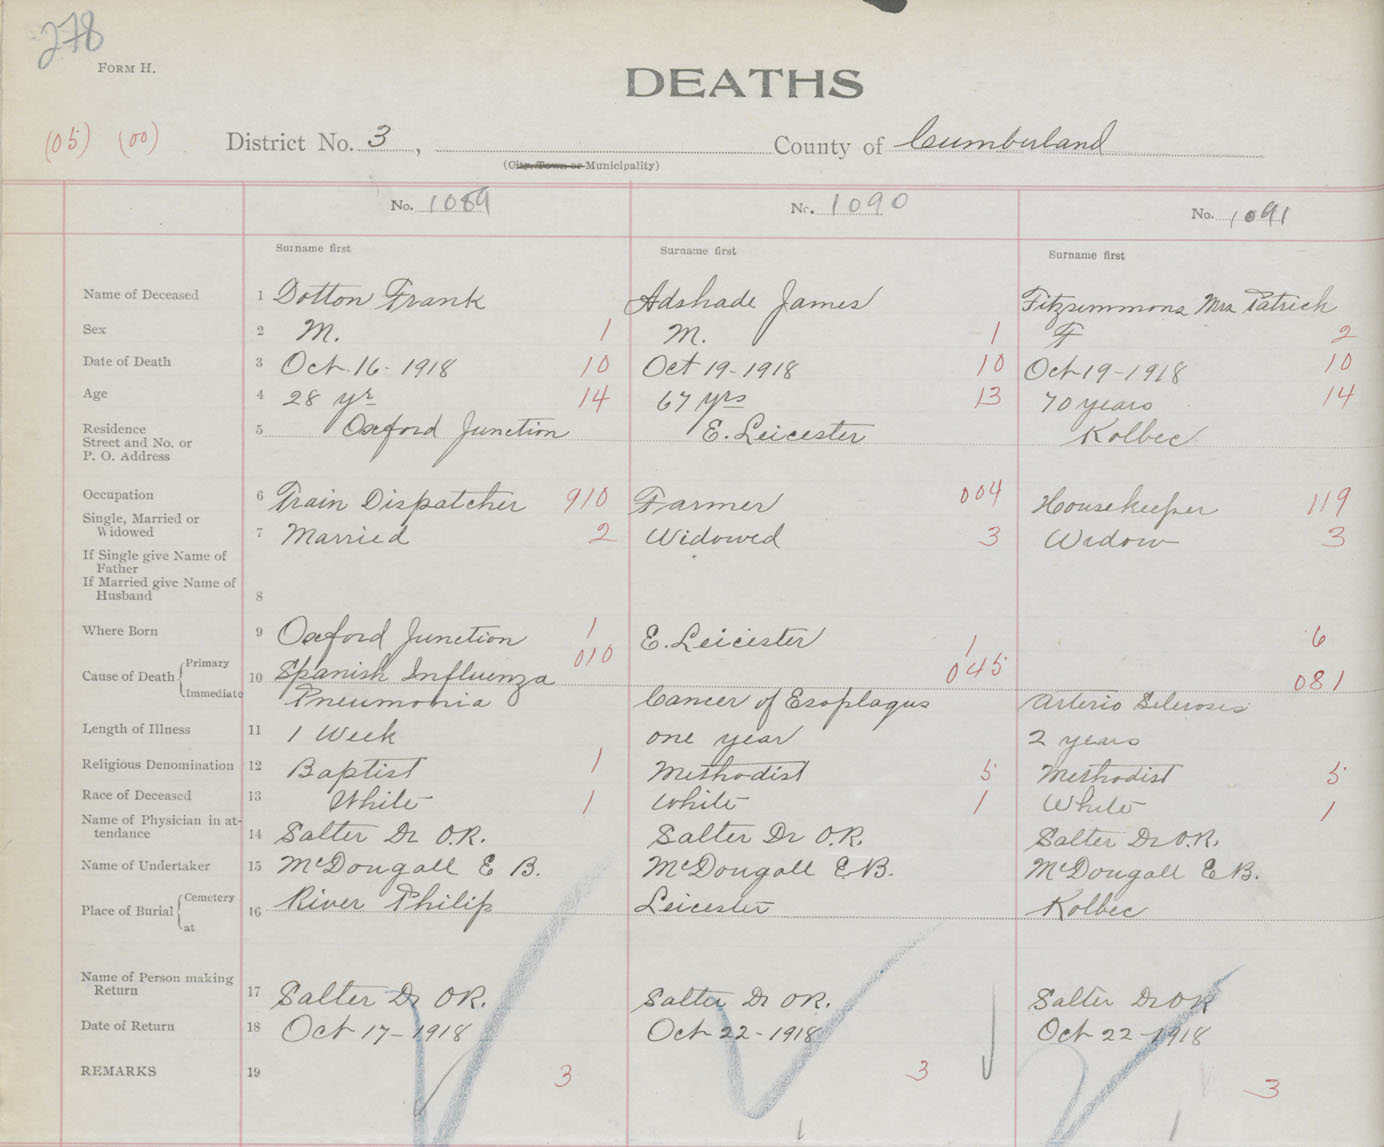 278
FORM H.
DEATHS
(05) (00)
District No. 3 , County of Cumberland
(City, Town or Municipality)
No. 1089 No. 1090 No. 1091
Surname first Surname first Surname first
Name of Deceased 1 Dotton Frank Adshade James Fitzsimmons Mrs Patrick
Sex 2 M. 1 M. 1 F 2
Date of Death 3 Oct. 16-1918 10 Oct 19-1918 10 Oct 19-1918 10
Age 4 28 yr 14 67 yrs 13 70 years 14
Residence
Street and No. or
P. O. Address 5 Oxford Junction E. Leicester Kolbec
Occupation 6 Train Dispatcher 910 Farmer 004 Housekeeper 119
Single, Married or
Widowed 7 Married 2 Widowed 3 Widow 3
If Single give Name of
Father
If Married give Name of
Husband 8
Where Born 9 Oxford Junction 1 E. Leicester 1 6
Cause of Death Primary 10 Spanish Influenza 010 045 081
Immediate Pneumonia Cancer of Esoplagus Arterio Sclerosis
Length of Illness 11 1 Week one year 2 years
Religious Denomination 12 Baptist 1 Methodist 5 Methodist 5
Race of Deceased 13 White 1 White 1 White 1
Name of Physician in at-
tendance 14 Salter Dr O.R. Salter Dr O.R. Salter Dr O.R.
Name of Undertaker 15 McDougall E B. McDougall E B. McDougall E B.
Place of Burial Cemetery 16 River Philip Leicester Kolbec
at
Name of Person making
Return 17 Salter Dr OR. Salter Dr OR. Salter Dr OR
Date of Return 18 Oct 17-1918 Oct 22-1918 Oct 22-1918
REMARKS 19 3 3 3